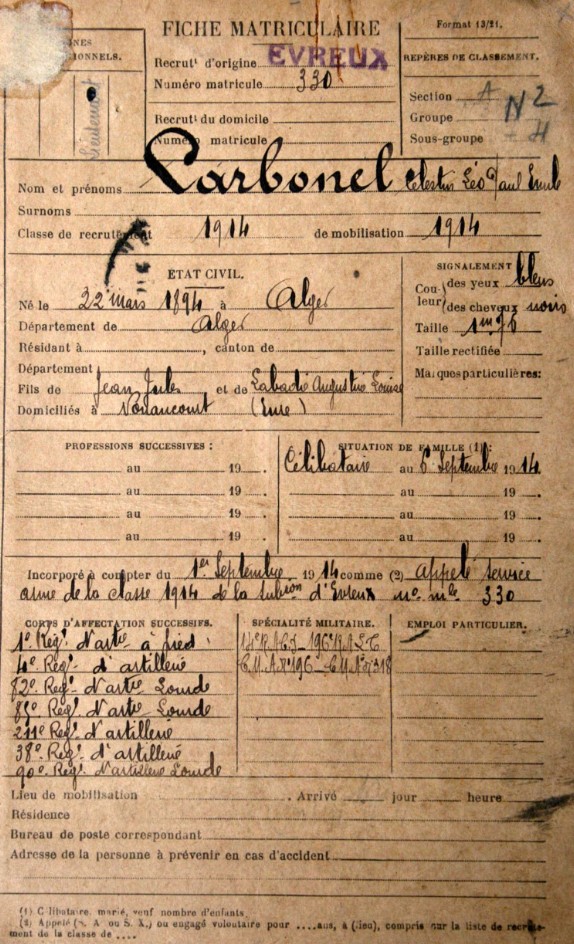 FICHE MATRICULAIRE
Format 13/21.
NES
IONNELS.
Lieutenant
Recrutt d'origine EVREUX
Numéro matricule 330
Recrutt du domicile
Numéro matricule
REPÈRES DE CLASSEMENT.
Section A
Groupe
Sous-groupe
N 2
4
Nom et prénoms Carbonel Célestin Léo Paul Emile
Surnoms
Classe de recrutement 1914 de mobilisation 1914
ETAT CIVIL.
Né le 22 mars 1894 à Alger
Département de Alger
Résidant à , canton de
Département
Fils de Jean Jules et de Labadie Augustine Louise
Domiciliés à Nonancourt (Eure)
SIGNALEMENT
Couleur des yeux bleus
des cheveux noirs
Taille 1m76
Taille rectifiée
Marques particulières:
PROFESSIONS SUCCESSIVES :
au 19 .
au 19 .
au 19 .
au 19 .
SITUATION DE FAMILLE (1):
Célibataire au 6 Septembre 1914
au 19 .
au 19 .
au 19 .
Incorporé à compter du 1er Septembre 1914 comme (2) appelé service
armé de la classe 1914 de la Subion d'Evreux no mle 330
CORPS D'AFFECTATION SUCCESSIFS.
1er Régt d'artie à pied
4e Régt d'artillerie
82e Régt d'artie Lourde
Régt d'artie Lourde
211e Régt d'artillerie
38e Régt d'artillerie
90e Régt d'artillerie Lourde
SPÉCIALITÉ MILITAIRE.
C.M.A. no 196 - C.M. no 318
EMPLOI PARTICULIER.
Lieu de mobilisation . Arrivé jour heure
Résidence
Bureau de poste correspondant
Adresse de la personne à prévenir en cas d'accident
(1) Célibataire, marié, veuf nombre d'enfants.
(2) Appelé (S. A ou S. X.) ou engagé volontaire pour ....ans, à (lieu), compris sur la liste de recrutement de la classe de ....